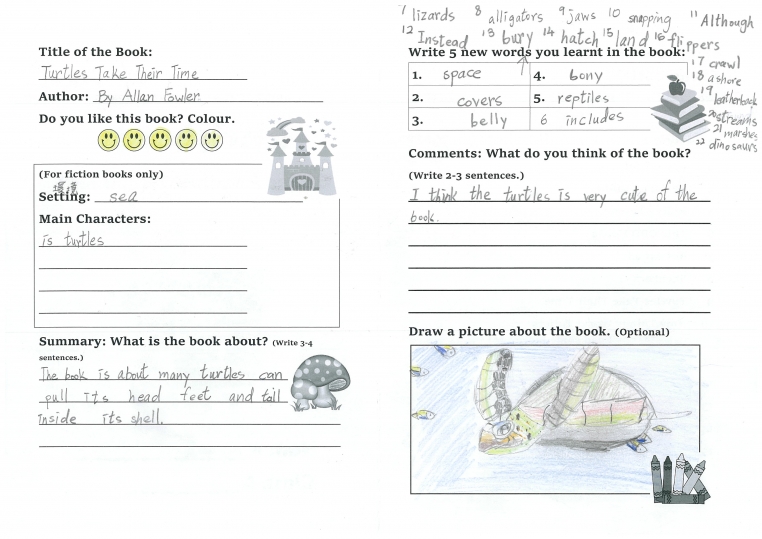 Title of the Book:
Turtles Take Their Time
Author: By Allan Fowler
Do you like this book? Colour.
(For fiction books only)
環境
Setting: sea
Main Characters:
is turtles
Summary: What is the book about? (Write 3-4
sentences.)
The book is about many turtles can
pull its head feet and tail
inside its shell.
7 lizards 8 alligators 9 jaws 10 snapping 11 Although
12 Instead 13 bury 14 hatch 15 land 16 flippers
Write 5 new words you learnt in the book:
17 crawl
18 ashore
19 leatherback
20 streams
21 marshes
22 dinosaurs
1. space 4. bony
2. covers 5. reptiles
3. belly 6 includes
Comments: What do you think of the book?
(Write 2-3 sentences.)
I think the turtles is very cute of the
book.
Draw a picture about the book. (Optional)